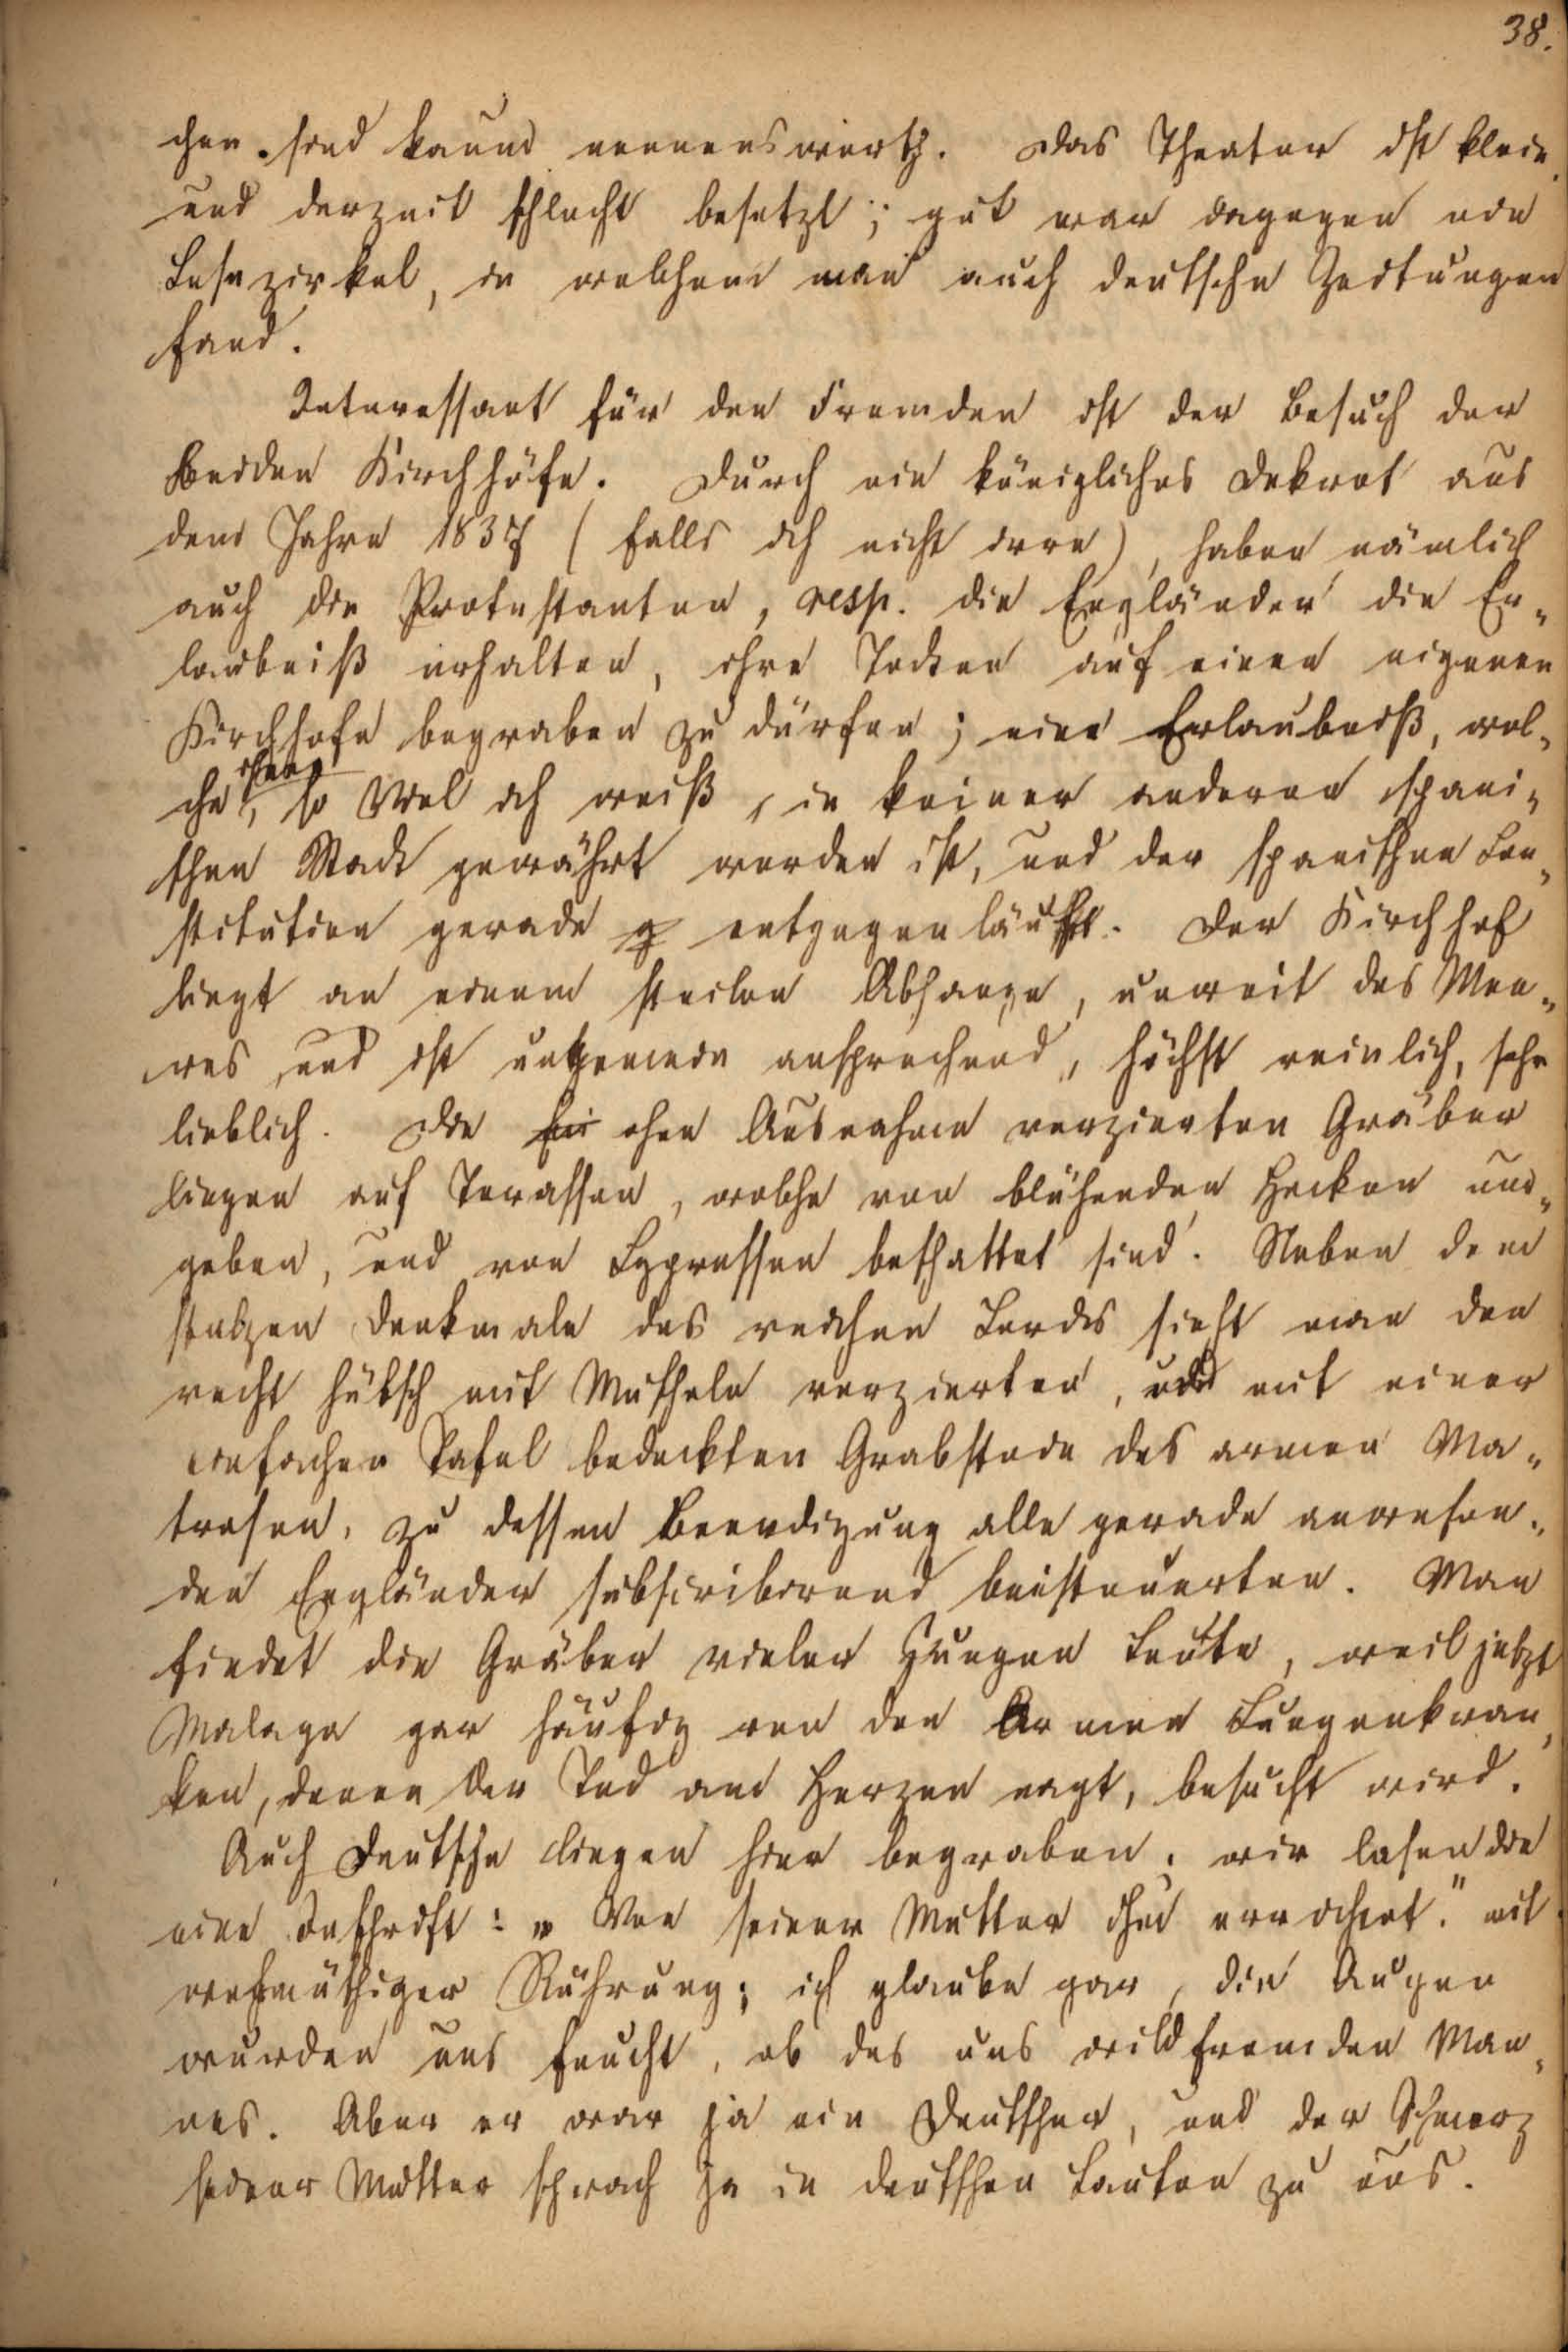 38.
chen sind kaum nennenswerth. Das Theater ist klein
und derzeit schlecht besetzt; gut war dagegen ein
Lesezirkel, in welchem man auch deutsche Zeitungen
fand.
Interessant für den Fremden ist der Besuch der
beiden Kirchhöfe. Durch ein königliches Dekret aus
dem Jahre 1837 (falls ich nicht irre), haben nämlich
auch die Protestanten, resp. die Engländer die Er„
laubniß erhalten, ihre Todten auf einem eigenen
Kirchhofe begraben zu dürfen; eine Erlaubniß, wel„
che ihnen, so viel ich weiß, in keiner anderen spani„
schen Stadt gewährt worden ist, und der spanischen Con„
stitution gerade entgegenläuft. Der Kirchhof
liegt an einem steilen Abhange, unweit des Mee„
res, und ist ungemein ansprechend, höchst reinlich, sehr
lieblich. Die ohne Ausnahme verzierten Gräber
liegen auf Terassen, welche von blühenden Hecken um„
geben, und von Cypressen beschattet sind. Neben dem
stolzen Denkmale des reichen Lords sieht man den
recht hübsch mit Muscheln verzierten, und mit einer
einfachen Tafel bedeckten Grabstein des armen Ma„
trosen, zu dessen Beerdigung alle gerade anwesen„
den Engländer subscribirend beisteuerten. Man
findet die Gräber vieler jungen Leute, weil jetzt
Malaga gar häufig von den armen Lungenkran„
ken, denen der Tod am Herzen nagt, besucht wird.
Auch Deutsche liegen hier begraben, wir lasen die
eine Inschrift: „Von seiner Mutter ihm errichtet." mit
wehmüthiger Rührung; ich glaube gar, die Augen
wurden uns feucht, ob des uns wildfremden Man„
nes. Aber er war ja ein Deutscher, und der Schmerz
seiner Mutter sprach ja in deutschen Lauten zu uns.